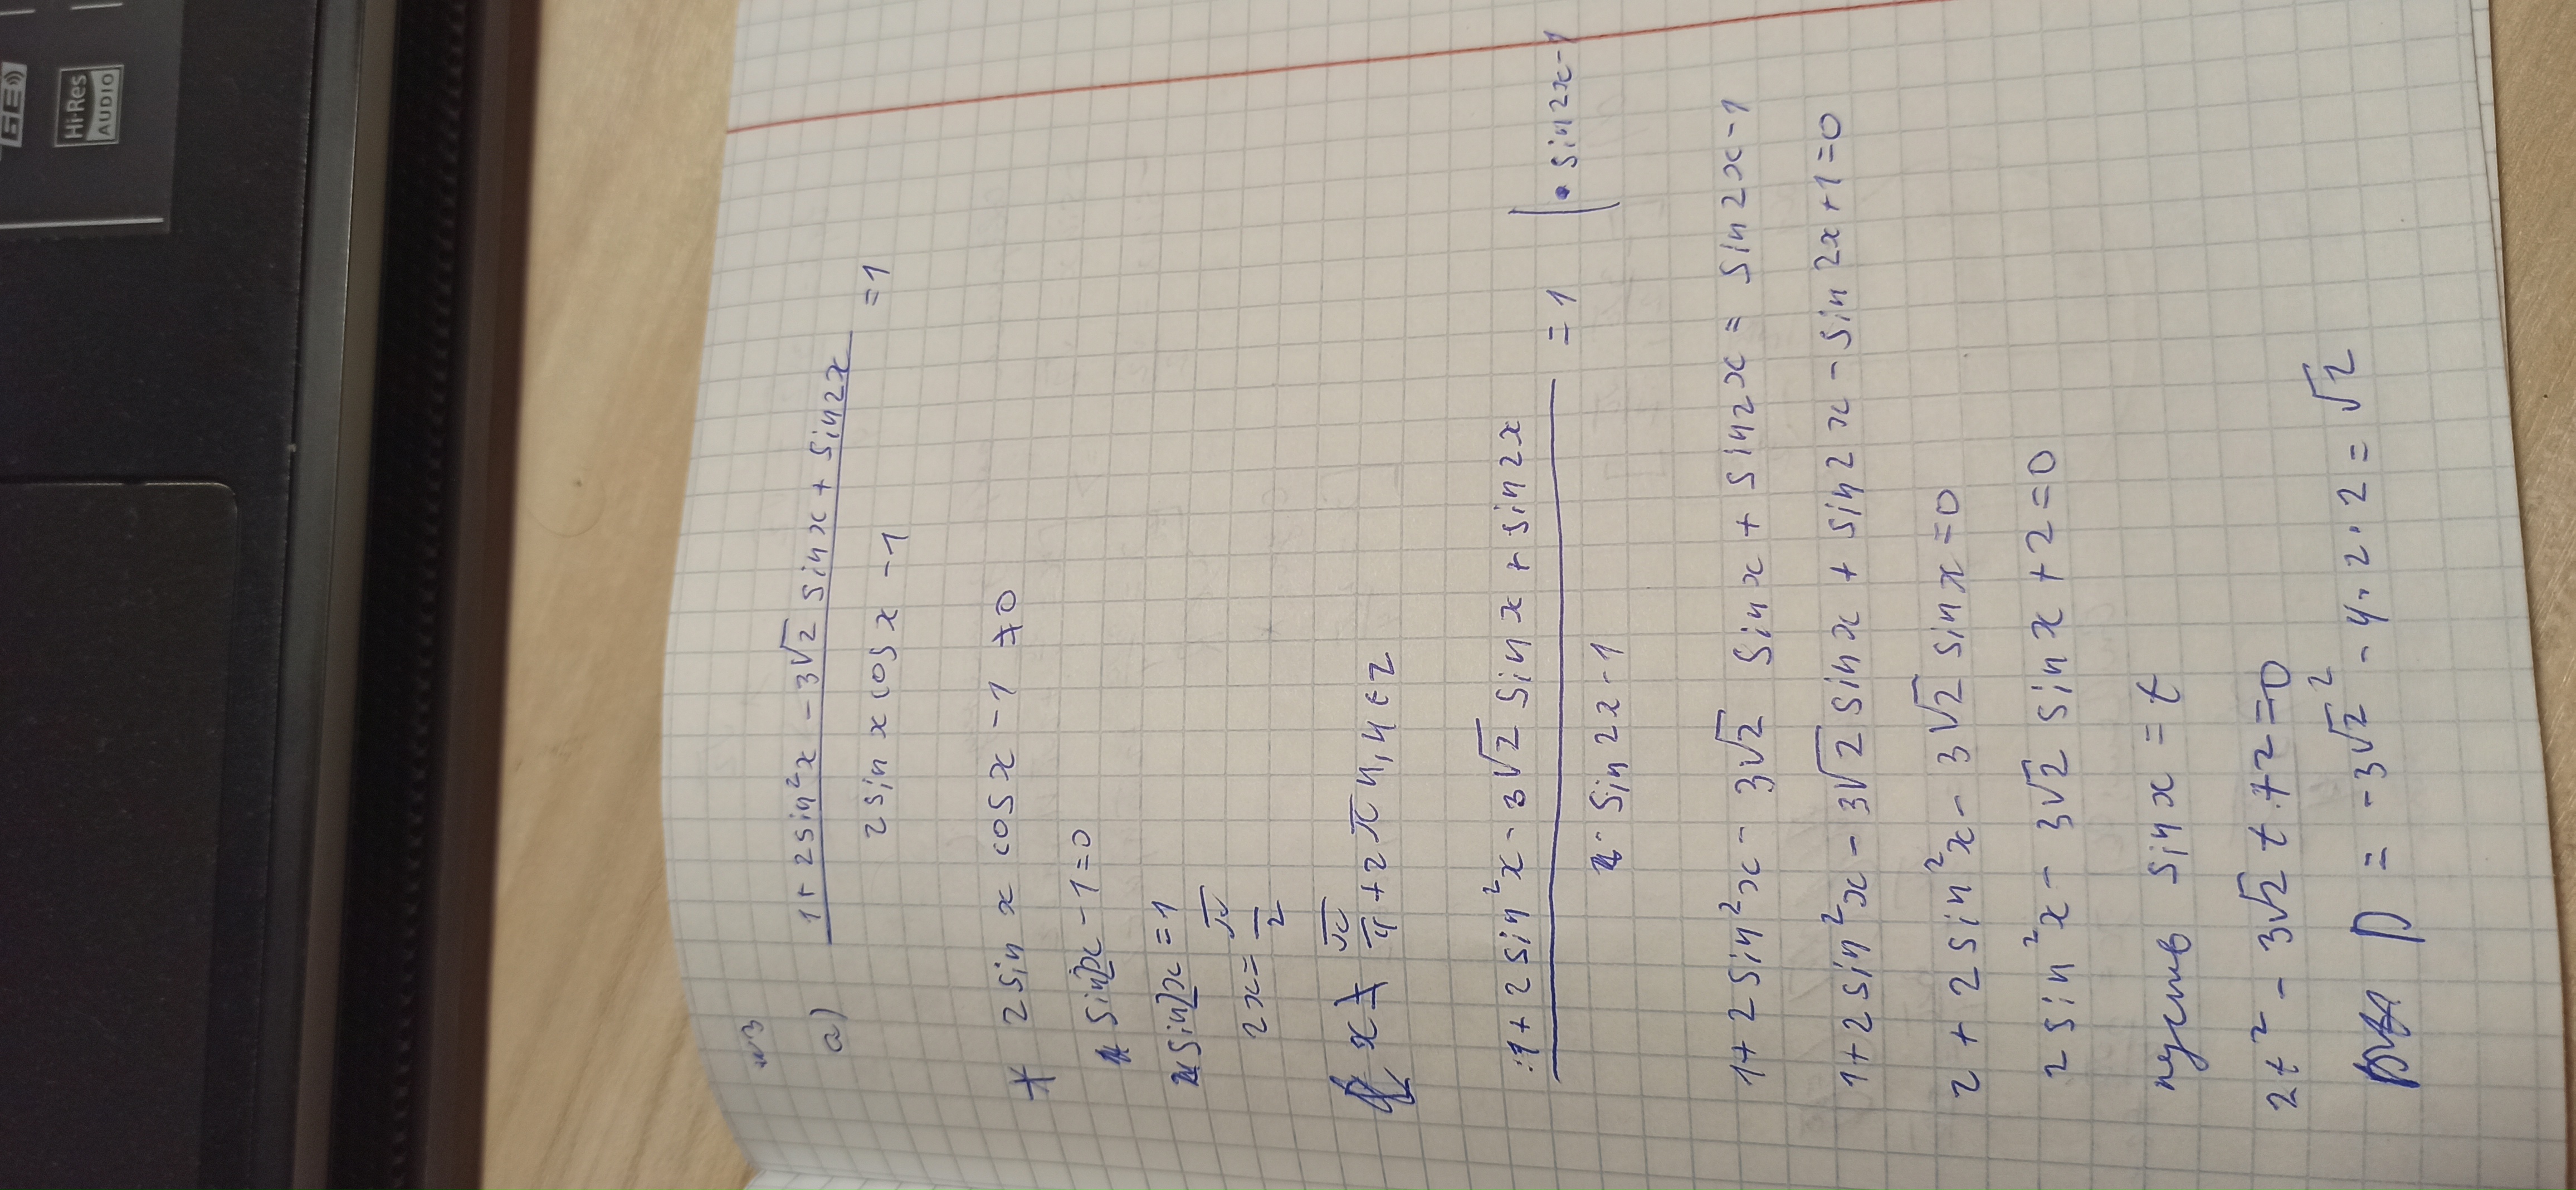 GE
Hi-Res
AUDIO
№3
а) (1 + 2sin²x - 3√2 sinx + sin2x) / (2sin x cosx - 1) = 1
* 2sin x cosx - 1 ≠ 0
sin2x - 1 = 0
sin2x = 1
2x = π/2
x ≠ π/4 + 2πn, n ∈ Z
(1 + 2sin²x - 3√2 sin x + sin2x) / (sin2x - 1) = 1 | · sin2x - 1
1 + 2sin²x - 3√2 sinx + sin2x = sin2x - 1
1 + 2sin²x - 3√2 sinx + sin2x - sin2x + 1 = 0
2 + 2sin²x - 3√2 sinx = 0
2sin²x - 3√2 sinx + 2 = 0
пусть sinx = t
2t² - 3√2 t + 2 = 0
D = -3√2² - 4·2·2 = √2